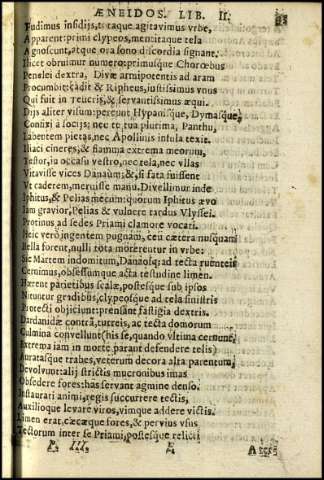 ÆNEIDOS. LIB. II.
Fudimus insidijs, totaque agitavimus vrbe,
Apparent: primi clypeos, mentitaque tela
Agnoscunt, atque ora sono discordia signant.
Ilicet obruimur numero: primusque Chorœbus
Penelei dextra, Divæ armipotentis ad aram
Procumbit: cadit & Ripheus, iustissimus vnus
Qui fuit in Teucris, & servantissimus æqui.
Dijs aliter visum: pereunt Hypanisque, Dymasque,
Confixi à socijs; nec te tua plurima, Panthu,
Labentem pietas, nec Apollinis infula texit.
Iliaci cineres, & flamma extrema meorum,
Testor, in occasu vestro, nec tela, nec vllas
Vitavisse vices Danaûm; &, si fata fuissent
Vt caderem, meruisse manu. Divellimur inde
Iphitus, & Pelias mecum: quorum Iphitus ævo
Iam gravior, Pelias & vulnere tardus Vlyssei.
Protinus ad sedes Priami clamore vocati.
Heic verò ingentem pugnam, ceu cætera nusquam
Bella forent, nulli tota morerentur in vrbe:
Sic Martem indomitum, Danaosq; ad tecta ruenteis
Cernimus, obsessumque acta testudine limen.
Hærent parietibus scalæ, postesque sub ipsos
Nituntur gradibus, clypeosque ad tela sinistris
Protecti obijciunt: prensant fastigia dextris.
Dardanidæ contrà, turreis, ac tecta domorum
Culmina convellunt (his se, quando vltima cernunt,
Extrema iam in morte parant defendere telis)
Auratasque trabes, veterum decora alta parentum,
Devolvunt: alij strictis mucronibus imas
Obsedere fores: has servant agmine denso.
Instaurati animi, regis succurrere tectis,
Auxilioque levare viros, vimque addere victis.
Limen erat, cæcæque fores, & pervius vsus
Tectorum inter se Priami, postesque relicti